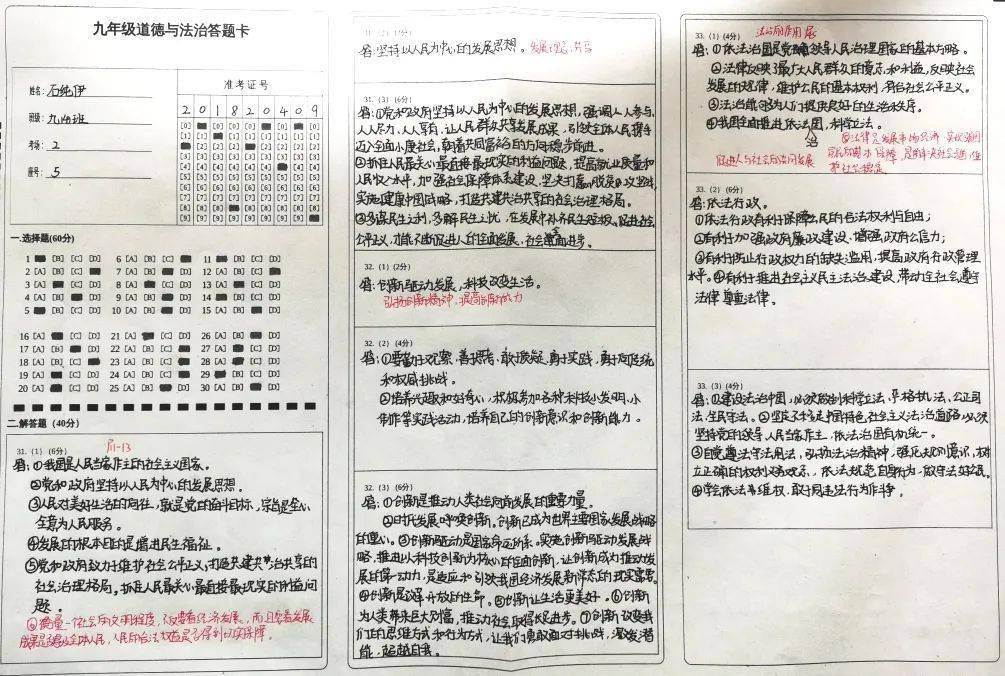 九年级道德与法治答题卡
姓名: 石纯伊
班级: 九(4)班
考场: 2
座号: 5
准考证号
2 0 1 8 2 0 4 0 9
[0] [0] [0] [0] [0] [0] [0]
[1] [1] [1] [1] [1] [1] [1] [1]
[2] [2] [2] [2] [2] [2] [2]
[3] [3] [3] [3] [3] [3] [3] [3] [3]
[4] [4] [4] [4] [4] [4] [4] [4]
[5] [5] [5] [5] [5] [5] [5] [5] [5]
[6] [6] [6] [6] [6] [6] [6] [6] [6]
[7] [7] [7] [7] [7] [7] [7] [7] [7]
[8] [8] [8] [8] [8] [8] [8] [8]
[9] [9] [9] [9] [9] [9] [9] [9]
一.选择题(60分)
1 [B] [C] [D] 6 [A] [B] [C] 11 [B] [C] [D]
2 [A] [B] [C] 7 [A] [C] [D] 12 [A] [B] [C]
3 [A] [C] [D] 8 [A] [B] [D] 13 [A] [C] [D]
4 [A] [B] [D] 9 [A] [B] [D] 14 [B] [C] [D]
5 [B] [C] [D] 10 [A] [B] [D] 15 [A] [B] [D]
16 [A] [C] [D] 21 [A] [C] [D] 26 [A] [B] [D]
17 [A] [B] [D] 22 [A] [B] [D] 27 [A] [C] [D]
18 [A] [B] [C] 23 [A] [B] [D] 28 [A] [C] [D]
19 [A] [C] [D] 24 [A] [B] [D] 29 [A] [C] [D]
20 [A] [C] [D] 25 [A] [B] [D] 30 [A] [B] [D]
二.解答题（40分）
31.（1）(6分)
答:①我国是人民当家作主的社会主义国家。
②党和政府坚持以人民为中心的发展思想。
③人民对美好生活的向往，就是党的奋斗目标，宗旨是全心
全意为人民服务。
④发展的根本目的是增进民生福祉。
⑤党和政府致力于维护社会公平正义,打造共建共治共享的
社会治理格局。抓住人民最关心最直接最现实的利益问
题。
⑥衡量一个社会的文明程度，不仅要看经济发展，而且要看发展
成果是否惠及全体人民，人民的合法权益是否得到切实保障。
答:坚持以人民为中心的发展思想。
31.（3）(6分)
答:①党和政府坚持以人民为中心的发展思想，强调人人参与、
人人尽力、人人享有，让人民群众共享发展成果，引领全体人民携手
迈入全面小康社会，朝着共同富裕的方向稳步前进。
②抓住人民最关心最直接最现实的利益问题，提高就业质量和
人民收入水平，加强社会保障体系建设，坚决打赢脱贫攻坚战，
实施健康中国战略，打造共建共治共享的社会治理格局。
③多谋民生之利，多解民生之忧，在发展中补齐民生短板、促进社会
公平正义，才能不断促进人的全面发展、社会全面进步。
32.（1）(2分)
答:创新驱动发展，科技改变生活。
弘扬创新精神，提高创新能力
32.（2）(4分)
答:①要勤于观察、善于思考、敢于质疑、勇于实践，勇于向传统
和权威挑战。
②培养兴趣和好奇心，积极参加各种科技小发明、小
制作等实践活动，培养自己的创新意识和创新能力。
32.（3）(6分)
答:①创新是推动人类社会向前发展的重要力量。
②时代发展呼唤创新。创新已成为世界主要国家发展战略
的重心。③创新驱动是国家命运所系。实施创新驱动发展战
略，推进以科技创新为核心的全面创新，让创新成为推动发
展的第一动力，是适应和引领我国经济发展新常态的现实需要。
④创新是改革开放的生命。⑤创新让生活更美好。⑥创新
为人类带来巨大财富，推动社会取得长足进步。⑦创新改变我
们的思维方式和行为方式，让我们勇敢面对挑战，激发潜
能，超越自我。
33.（1）(4分)
答:①依法治国是党领导人民治理国家的基本方略。
②法律反映了最广大人民群众的意志和利益，反映社会
发展的规律，维护公民的基本权利，符合社会公平正义。
③法治能够为人们提供良好的生活秩序。
④我国全面推进依法治国，科学立法。
促进人与社会的协同发展
33.（2）(6分)
答:依法行政。
①依法行政有利于保障公民的合法权利与自由；
②有利于加强政府廉政建设、增强政府公信力；
③有利于防止行政权力的缺失滥用，提高政府行政管理
水平。④有利于推进社会主义民主法治建设，带动全社会遵守
法律 尊重法律。
33.（3）(4分)
答:①建设法治中国，必须做到科学立法、严格执法、公正司
法、全民守法。②坚定不移走中国特色社会主义法治道路，必须
坚持党的领导、人民当家作主、依法治国有机统一。
③自觉尊法守法用法，弘扬法治精神，强化规则意识，树
立正确的权利义务观念，依法规范自身行为，做守法好公民。
④学会依法去维权，敢于同违法行为作斗争。